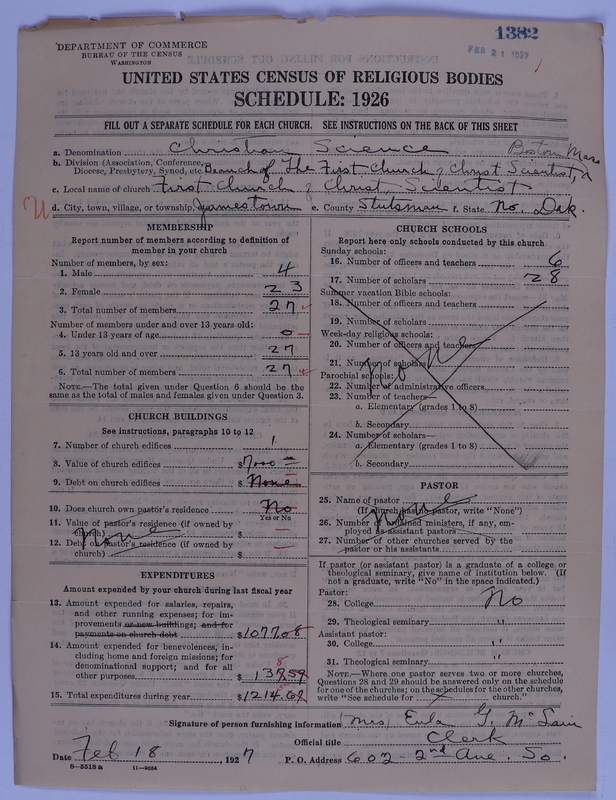 1382
FEB 21 1927
DEPARTMENT OF COMMERCE
BUREAU OF THE CENSUS
WASHINGTON
UNITED STATES CENSUS OF RELIGIOUS BODIES
SCHEDULE: 1926
FILL OUT A SEPARATE SCHEDULE FOR EACH CHURCH. SEE INSTRUCTIONS ON THE BACK OF THIS SHEET
a. Denomination Christian Science
Boston Mass
b. Division (Association, Conference,
Diocese, Presbytery, Synod, etc. Branch of The First Church of Christ Scientist,
c. Local name of church First Church of Christ, Scientist
d. City, town, village, or township, Jamestown e. County Stutsman f. State No. Dak.
MEMBERSHIP
Report number of members according to definition of
member in your church
Number of members, by sex:
1. Male 4
2. Female 23
3. Total number of members 27
Number of members under and over 13 years old:
4. Under 13 years of age 0
5. 13 years old and over 27
6. Total number of members 27
NOTE.—The total given under Question 6 should be the
same as the total of males and females given under Question 3.
CHURCH BUILDINGS
See instructions, paragraphs 10 to 12
7. Number of church edifices 1
8. Value of church edifices $7000
9. Debt on church edifices $ None
10. Does church own pastor's residence No
Yes or No
11. Value of pastor's residence (if owned by
church) $
12. Debt on pastor's residence (if owned by
church) $
None
EXPENDITURES
Amount expended by your church during last fiscal year
13. Amount expended for salaries, repairs,
and other running expenses; for im-
provements or new buildings; and for
payments on church debt $1077.08
14. Amount expended for benevolences, in-
cluding home and foreign missions; for
denominational support; and for all
other purposes $
15. Total expenditures during year $
CHURCH SCHOOLS
Report here only schools conducted by this church
Sunday schools:
16. Number of officers and teachers 6
17. Number of scholars 28
Summer vacation Bible schools:
18. Number of officers and teachers
19. Number of scholars
Week-day religious schools:
20. Number of officers and teachers
21. Number of scholars
None
Parochial schools:
22. Number of administrative officers
23. Number of teachers—
a. Elementary (grades 1 to 8)
b. Secondary
24. Number of scholars—
a. Elementary (grades 1 to 8)
b. Secondary
PASTOR
25. Name of pastor
(If church has no pastor, write "None")
None
26. Number of ordained ministers, if any, em-
ployed as assistant pastors
27. Number of other churches served by the
pastor or his assistants
If pastor (or assistant pastor) is a graduate of a college or
theological seminary, give name of institution below. (If
not a graduate, write "No" in the space indicated.)
Pastor:
28. College No
29. Theological seminary "
Assistant pastor:
30. College "
31. Theological seminary "
NOTE.—Where one pastor serves two or more churches,
Questions 28 and 29 should be answered only on the schedule
for one of the churches; on the schedules for the other churches,
write "See schedule for church."
Signature of person furnishing information Mrs Eula G. McLain
Official title Clerk
Date Feb 18, 1927 P. O. Address 602 - 2nd Ave. So.
8—5518a 11—9084